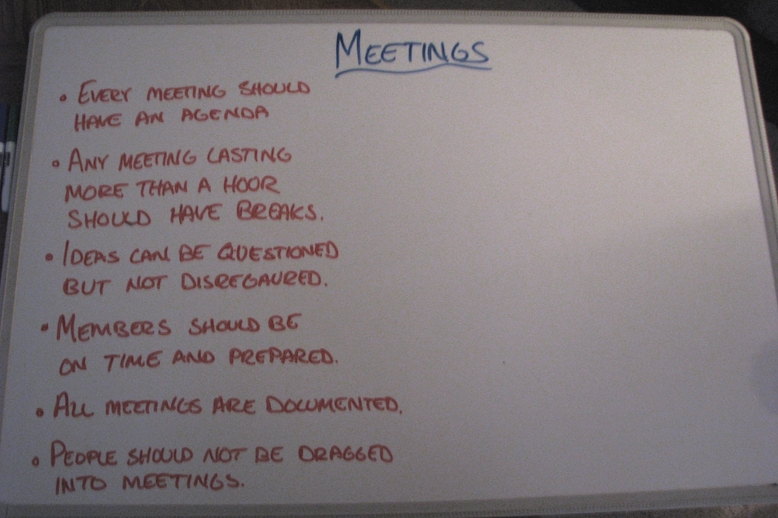 MEETINGS
• EVERY MEETING SHOULD
HAVE AN AGENDA
• ANY MEETING LASTING
MORE THAN A HOUR
SHOULD HAVE BREAKS.
• IDEAS CAN BE QUESTIONED
BUT NOT DISREGAURED.
• MEMBERS SHOULD BE
ON TIME AND PREPARED.
• ALL MEETINGS ARE DOCUMENTED.
• PEOPLE SHOULD NOT BE DRAGGED
INTO MEETINGS.